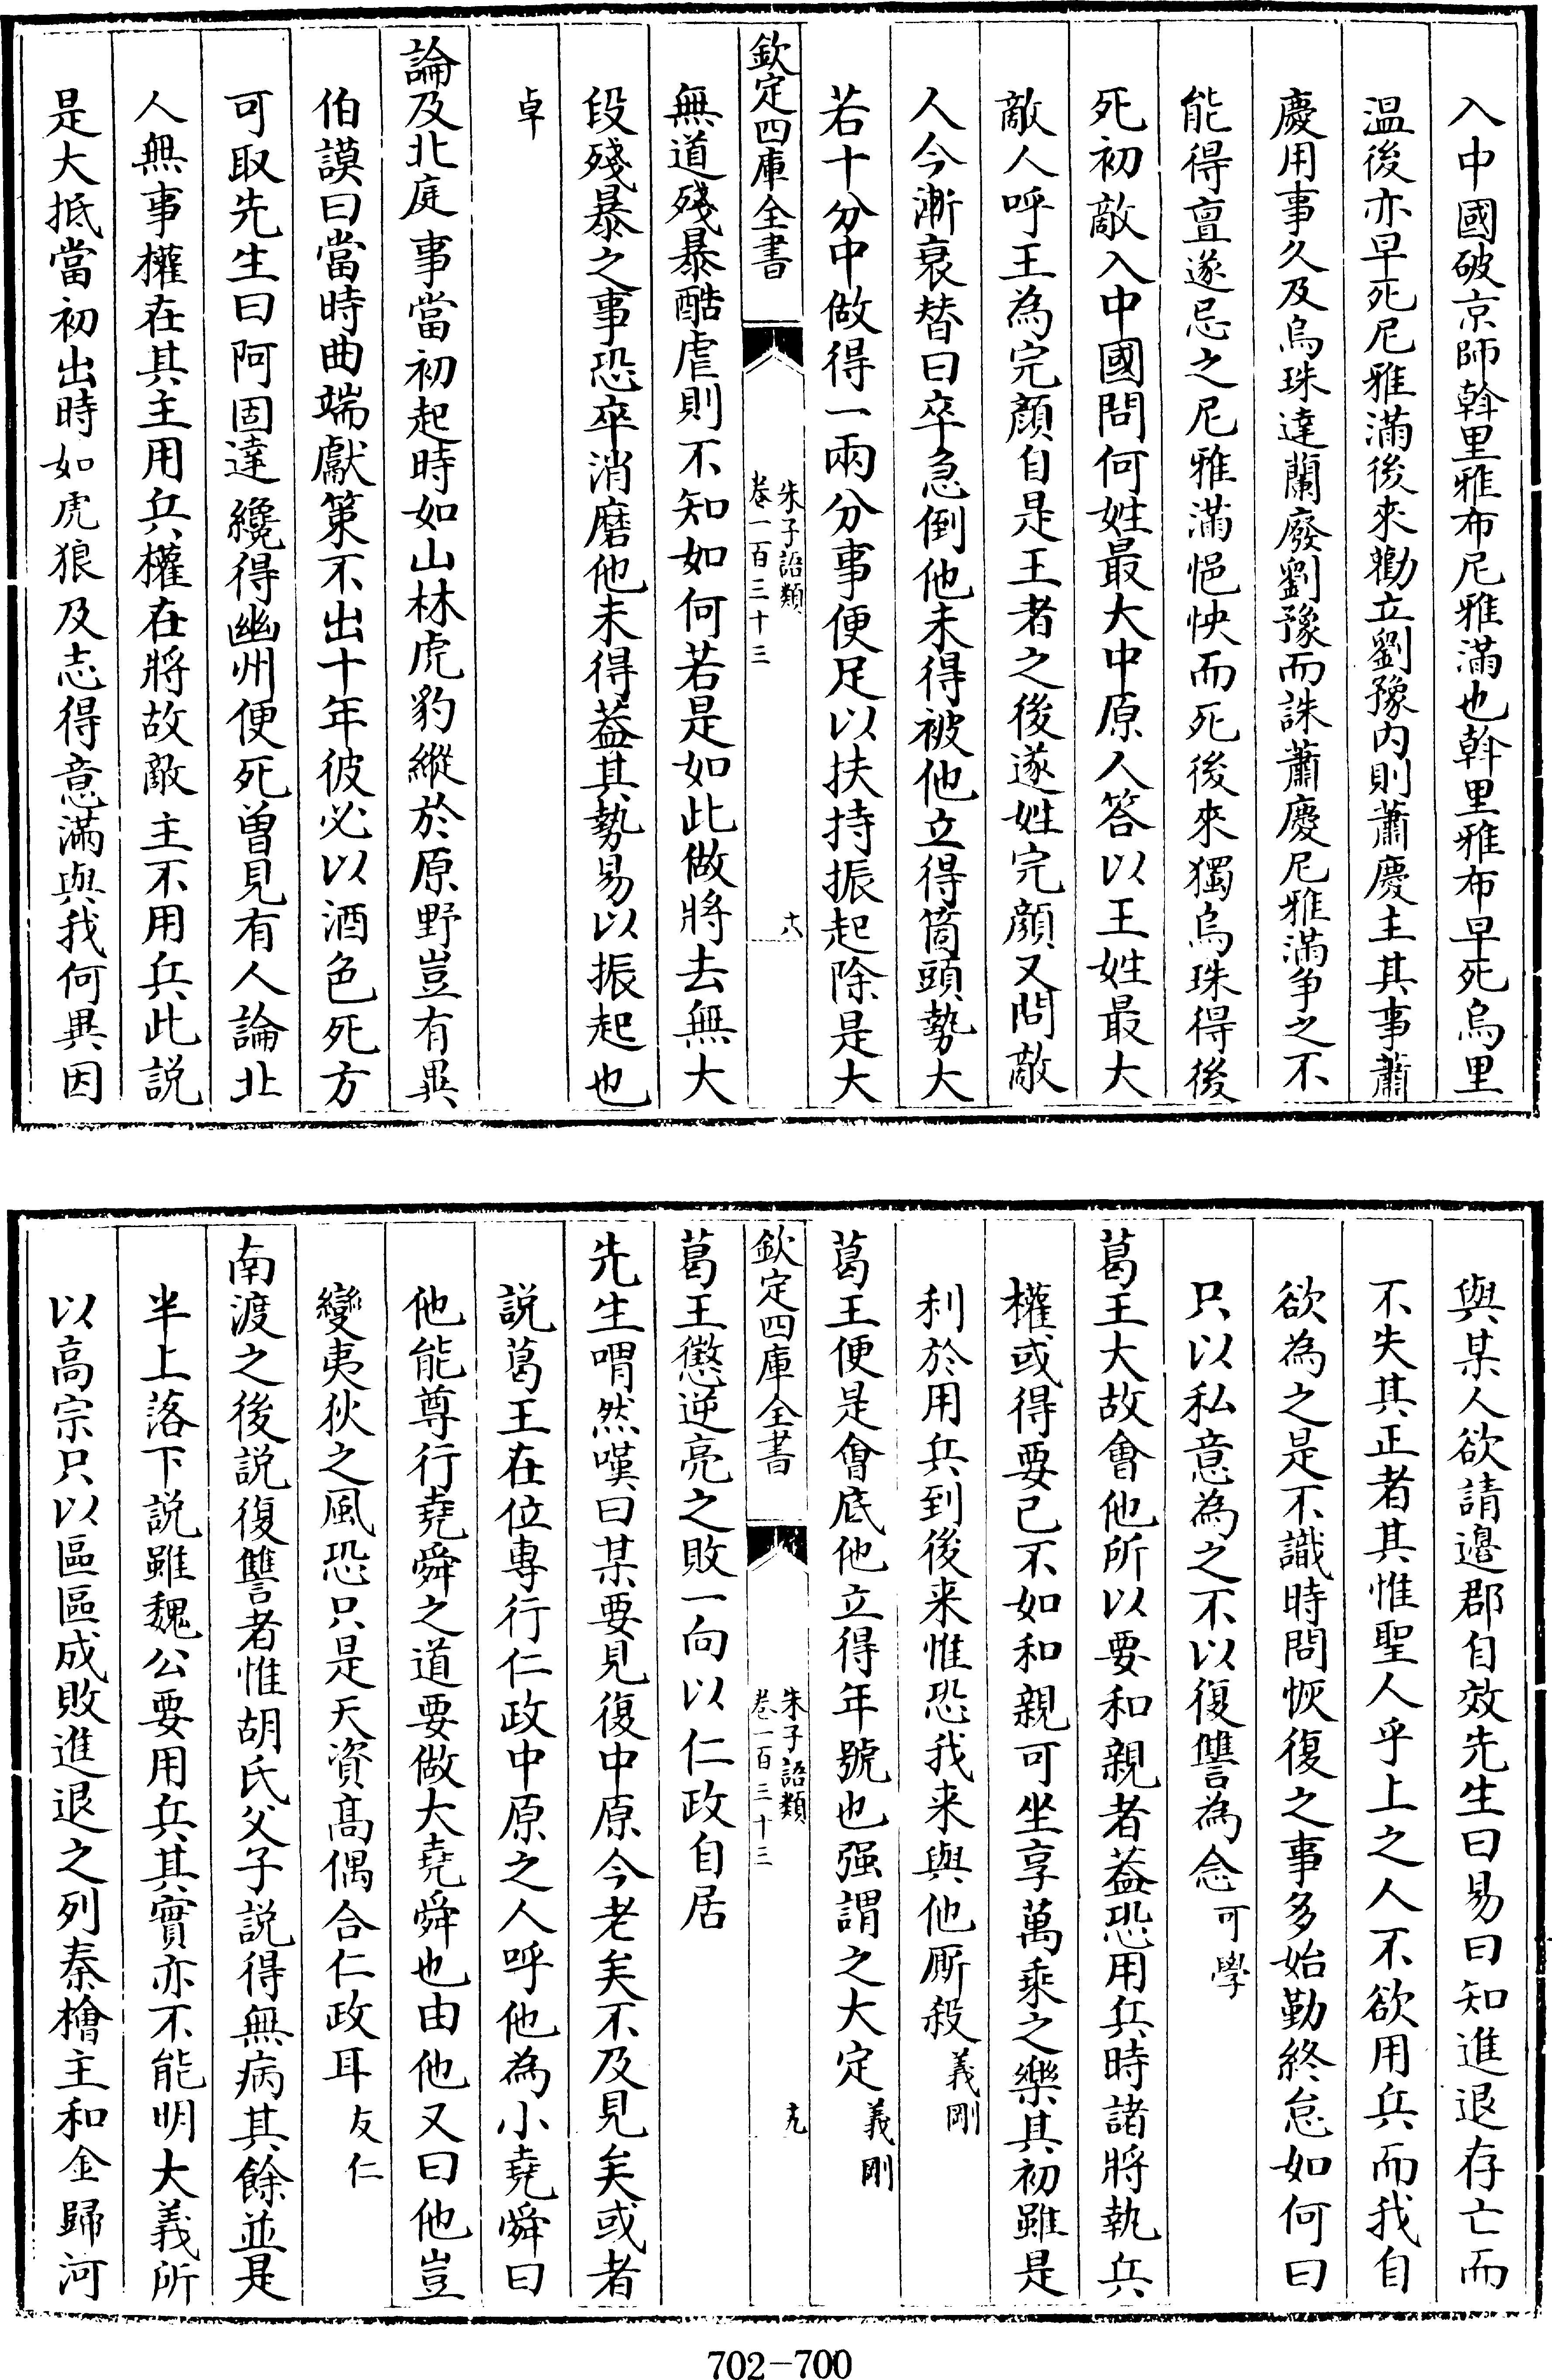 入中國破京師斡里雅布尼雅滿也斡里雅布早死烏里
温後亦早死尼雅滿後來勸立劉豫内則蕭慶主其事蕭
慶用事久及烏珠達蘭廢劉豫而誅蕭慶尼雅滿爭之不
能得亶遂忌之尼雅滿悒怏而死後來獨烏珠得後
死初敵入中國問何姓最大中原人答以王姓最大
敵人呼王為完顔自是王者之後遂姓完顔又問敵
人今漸衰替曰卒急倒他未得被他立得箇頭勢大
若十分中做得一兩分事便足以扶持振起除是大
欽定四庫全書
朱子語類
卷一百三十三
十八
無道殘暴酷虐則不知如何若是如此做將去無大
段殘暴之事恐卒消磨他未得葢其勢易以振起也
卓
論及北庭事當初起時如山林虎豹縱於原野豈有異
伯謨曰當時曲端獻策不出十年彼必以酒色死方
可取先生曰阿固達纔得幽州便死曽見有人論北
人無事權在其主用兵權在將故敵主不用兵此説
是大抵當初出時如虎狼及志得意滿與我何異因
與某人欲請邉郡自效先生曰易曰知進退存亡而
不失其正者其惟聖人乎上之人不欲用兵而我自
欲為之是不識時問恢復之事多始勤終怠如何曰
只以私意為之不以復讐為念可學
葛王大故會他所以要和親者葢恐用兵時諸將執兵
權或得要已不如和親可坐享萬乘之樂其初雖是
利於用兵到後来惟恐我来與他厮殺義剛
葛王便是會底他立得年號也强謂之大定義剛
欽定四庫全書
朱子語類
卷一百三十三
十九
葛王懲逆亮之敗一向以仁政自居
先生喟然嘆曰某要見復中原今老矣不及見矣或者
説葛王在位專行仁政中原之人呼他為小堯舜曰
他能尊行堯舜之道要做大堯舜也由他又曰他豈
變夷狄之風恐只是天資髙偶合仁政耳友仁
南渡之後説復讐者惟胡氏父子説得無病其餘並是
半上落下説雖魏公要用兵其實亦不能明大義所
以高宗只以區區成敗進退之列秦檜主和金歸河
702-700